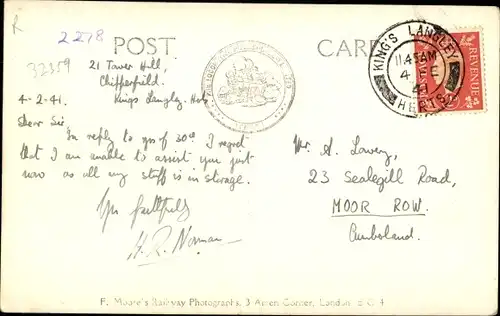 R
2218
32359
POST CARD
21 Tower Hill,
Chipperfield.
Kings Langley. Herts
4-2-41.
Dear Sir,
In reply to yrs of 30th I regret
that I am unable to assist you just
now as all my stuff is in storage.
Yrs faithfully
H. R. Norman
KING'S LANGLEY
11.45AM
4 FE
41
HERTS
REVENUE
Mr. A. Lowery,
23 Scalegill Road,
MOOR ROW.
Cumberland.
F. Moore's Railway Photographs, 3 Amen Corner, London E C 4